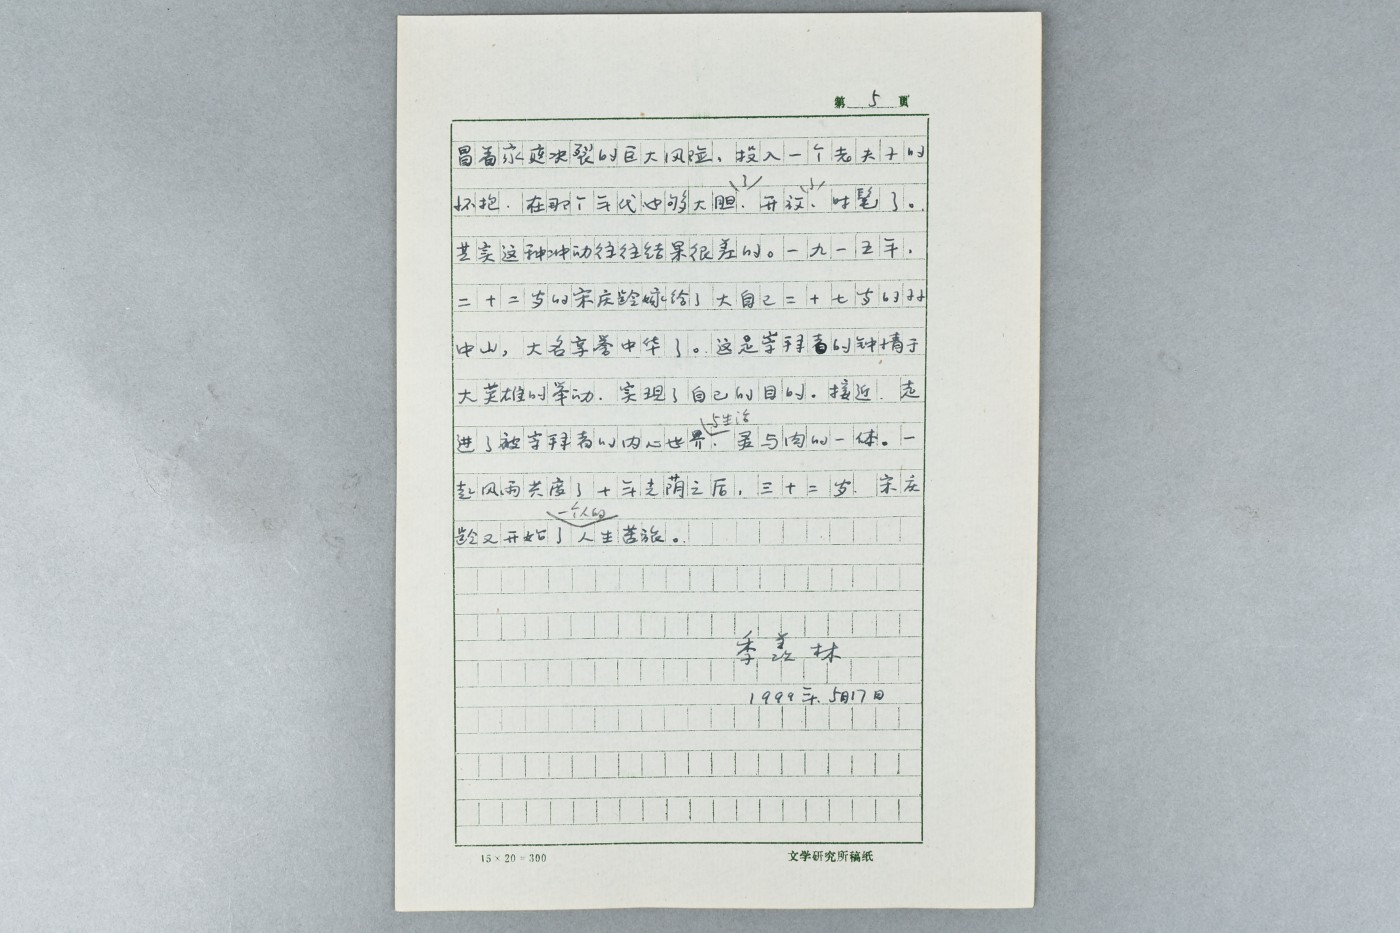 第 5 页
冒着家庭决裂的巨大风险,投入一个老夫子的
怀抱.在那个年代也够大胆了、开放了、时髦了。
其实这种冲动往往结果很差的。一九一五年,
二十二岁的宋庆龄嫁给了大自己二十七岁的孙
中山,大名享誉中华了。这是崇拜者的钟情于
大英雄的举动.实现了自己的目的。接近.走
进了被崇拜者的内心世界与生活.灵与肉的一体。一
起风雨共度了十年光荫之后,三十二岁.宋庆
龄又开始了一个人的人生苦旅。
季羡林
1999年.5月17日
15×20=300
文学研究所稿纸